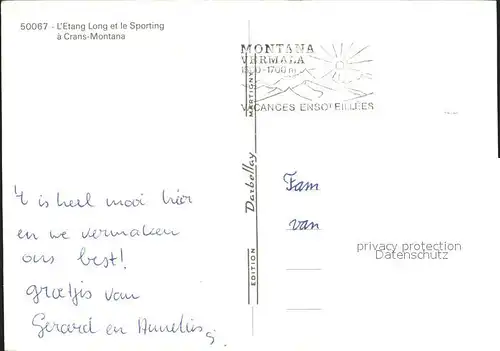 50067 - L'Etang Long et le Sporting
à Crans-Montana
MONTANA
VERMALA
1500-1700 m
VACANCES ENSOLEILLÉES
EDITION Darbellay MARTIGNY
't is heel mooi hier
en we vermaken
ons best!
groetjes van
Gerard en Annelies
Fam
van
privacy protection
Datenschutz